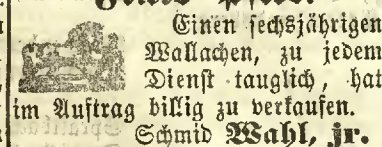 Einen sechsjährigen
Wallachen, zu jedem
Dienst tauglich, hat
im Auftrag billig zu verkaufen.
Schmid Wahl, jr.